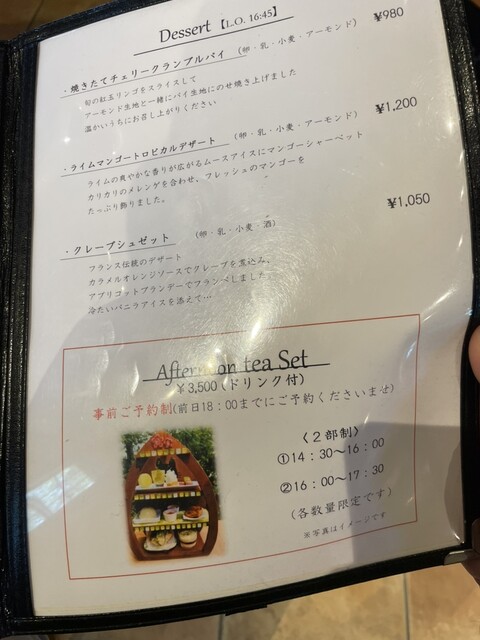 Dessert 【L.O. 16:45】
・焼きたてチェリークランブルパイ (卵・乳・小麦・アーモンド) ¥980
旬の紅玉リンゴをスライスして
アーモンド生地と一緒にパイ生地にのせ焼き上げました
温かいうちにお召し上がりください
・ライムマンゴートロピカルデザート (卵・乳・小麦・アーモンド) ¥1,200
ライムの爽やかな香りが広がるムースアイスにマンゴーシャーベット
カリカリのメレンゲを合わせ、フレッシュのマンゴーを
たっぷり飾りました。
・クレープシュゼット (卵・乳・小麦・酒) ¥1,050
フランス伝統のデザート
カラメルオレンジソースでクレープを煮込み、
アプリコットブランデーでフランベしました。
冷たいバニラアイスを添えて…
Afternoon tea Set
¥3,500(ドリンク付)
事前ご予約制(前日18:00までにご予約くださいませ)
〈2部制〉
①14:30～16:00
②16:00～17:30
(各数量限定です)
※写真はイメージです